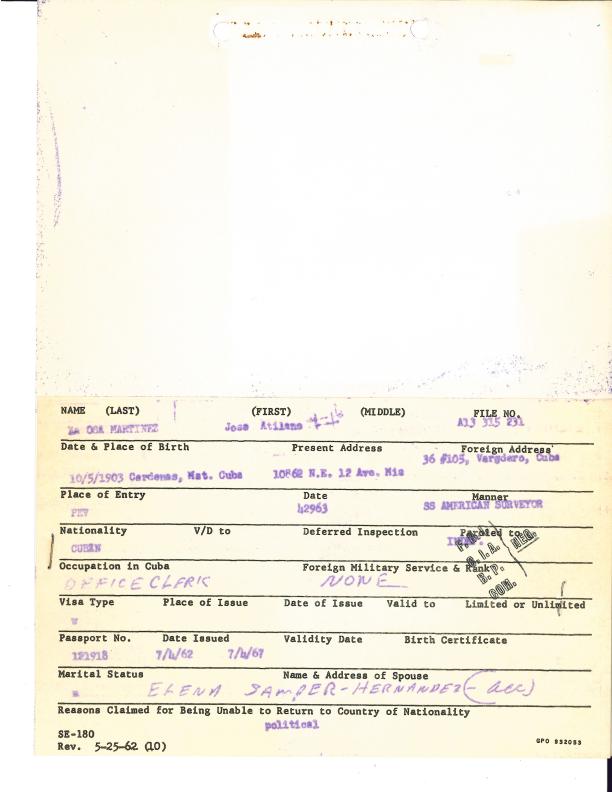 NAME (LAST) (FIRST) (MIDDLE) FILE NO.
La OSA MARTINEZ Jose Atilano A13 315 231
Date & Place of Birth Present Address Foreign Address
36 #105, Vardero, Cuba
10/5/1903 Cardenas, Mat. Cuba 10862 N.E. 12 Ave. Mia
Place of Entry Date Manner
PEV 42963 SS AMERICAN SURVEYOR
Nationality V/D to Deferred Inspection Paroled to
CUBAN
Occupation in Cuba Foreign Military Service & Rank
OFFICE CLERK NONE
Visa Type Place of Issue Date of Issue Valid to Limited or Unlimited
W
Passport No. Date Issued Validity Date Birth Certificate
121918 7/4/62 7/4/67
Marital Status Name & Address of Spouse
m ELENA SAMPER-HERNANDEZ (-acc)
Reasons Claimed for Being Unable to Return to Country of Nationality
political
SE-180
Rev. 5-25-62 (10) GPO 932053
F.B.I.
C.I.A. NEG.
B.P.
COM.